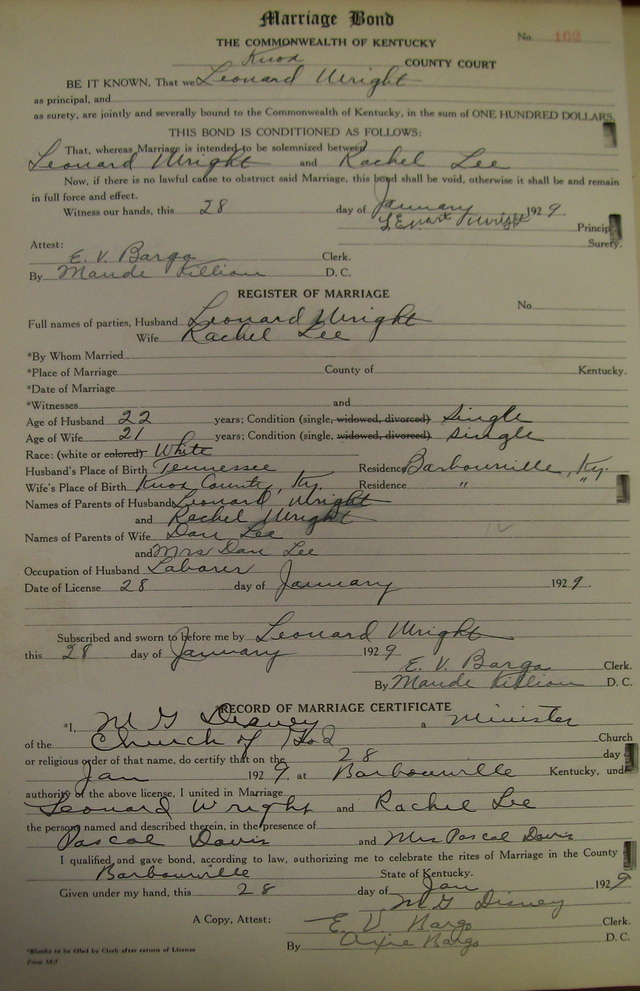 Marriage Bond
THE COMMONWEALTH OF KENTUCKY No. 102
Knox COUNTY COURT
BE IT KNOWN, That we Leonard Wright
as principal, and
as surety, are jointly and severally bound to the Commonwealth of Kentucky, in the sum of ONE HUNDRED DOLLARS.
THIS BOND IS CONDITIONED AS FOLLOWS:
That, whereas Marriage is intended to be solemnized between
Leonard Wright and Rachel Lee
Now, if there is no lawful cause to obstruct said Marriage, this bond shall be void, otherwise it shall be and remain
in full force and effect.
Witness our hands, this 28 day of January 1929
Wright Princip
Surety.
Attest:
E. V. Bargo Clerk.
By Maude Killion D. C.
REGISTER OF MARRIAGE
No
Full names of parties, Husband Leonard Wright
Wife Rachel Lee
*By Whom Married
*Place of Marriage County of Kentucky.
*Date of Marriage
*Witnesses and
Age of Husband 22 years; Condition (single, widowed, divorced) Single
Age of Wife 21 years; Condition (single, widowed, divorced) Single
Race: (white or colored) White
Husband's Place of Birth Tennessee Residence Barbourville, Ky.
Wife's Place of Birth Knox County, Ky. Residence " "
Names of Parents of Husband Leonard Wright
and Rachel Wright
Names of Parents of Wife Dan Lee
and Mrs Dan Lee
Occupation of Husband Laborer
Date of License 28 day of January 1929.
Subscribed and sworn to before me by Leonard Wright
this 28 day of January 1929
E. V. Bargo Clerk.
By Maude Killion D. C.
RECORD OF MARRIAGE CERTIFICATE
*I, M G Disney a Minister
of the Church of God Church
or religious order of that name, do certify that on the 28 day
Jan 1929, at Barbourville Kentucky, und
authority of the above license, I united in Marriage
Leonard Wright and Rachel Lee
the persons named and described therein, in the presence of
Pascal Davis and Mrs Pascal Davis
I qualified and gave bond, according to law, authorizing me to celebrate the rites of Marriage in the County
Barbourville State of Kentucky.
Given under my hand, this 28 day of Jan 1929
M G Disney
A Copy, Attest: E. V. Bargo Clerk.
By Bargo D. C.
*Blanks to be filled by Clerk after return of License